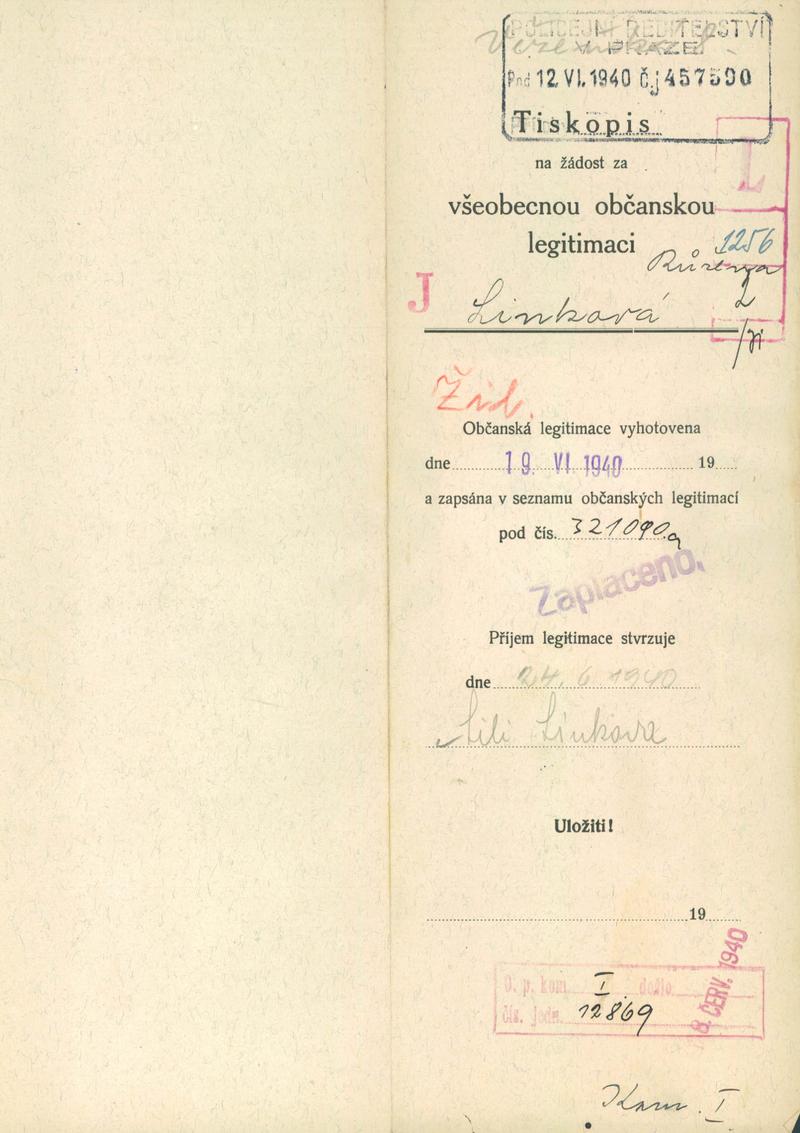 POLICEJNÍ ŘEDITELSTVÍ
V PRAZE
Pod 12.VI.1940 č.j 457590
Tiskopis
na žádost za
všeobecnou občanskou
legitimaci
1256
Růžena
J
Linková
Žid.
Občanská legitimace vyhotovena
dne 19. VI. 1940 19
a zapsána v seznamu občanských legitimací
pod čís. 321090
Zaplaceno.
Příjem legitimace stvrzuje
dne 24. 6 1940
Lili Linkova
Uložiti!
19
O. p. kom. I. došlo
8. ČERV. 1940
čís. jedn. 12869
Kom. I